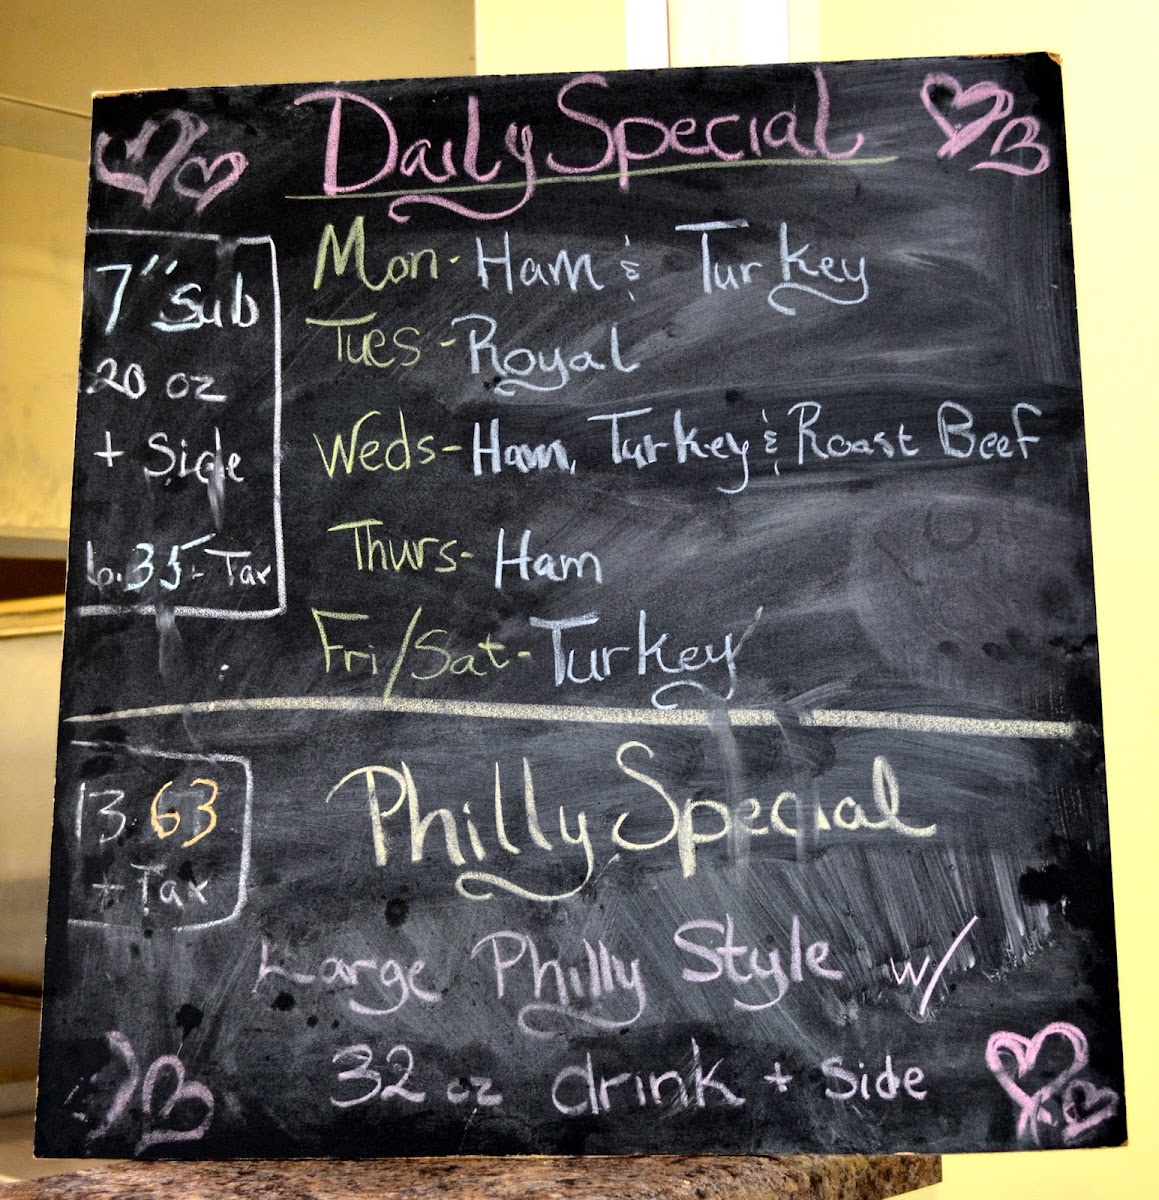 Daily Special
7" Sub
20 oz
+ Side
6.35 + Tax
Mon - Ham & Turkey
Tues - Royal
Weds - Ham, Turkey & Roast Beef
Thurs - Ham
Fri/Sat - Turkey
13.63
+ Tax
Philly Special
Large Philly Style w/
32 oz drink + Side